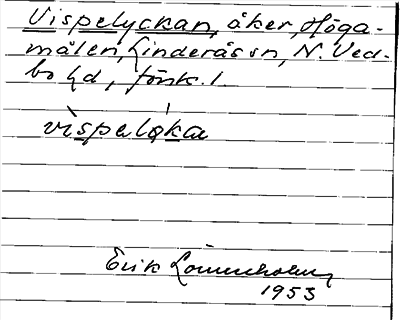 Vispelyckan, åker, Höga-
målen, Linderås sn, N. Ved-
bo hd, Jönk. l.
vìspelø̀ka
Erik Lönnerholm
1953